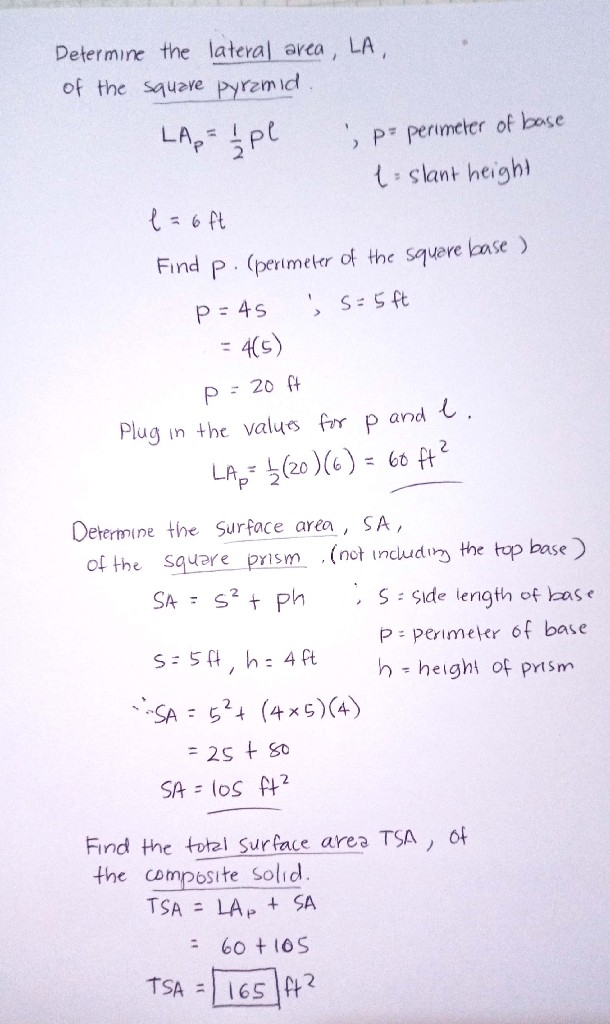 Determine the lateral area, LA,
of the square pyramid.
LAₚ = 1/2 pl ; p = perimeter of base
l = slant height
l = 6 ft
Find p. (perimeter of the square base)
p = 4s ; s = 5 ft
= 4(5)
p = 20 ft
Plug in the values for p and l.
LAₚ = 1/2 (20)(6) = 60 ft²
Determine the surface area, SA,
of the square prism. (not including the top base)
SA = s² + ph ; s = side length of base
p = perimeter of base
s = 5 ft, h = 4 ft h = height of prism
∴ SA = 5² + (4×5)(4)
= 25 + 80
SA = 105 ft²
Find the total surface area TSA, of
the composite solid.
TSA = LAₚ + SA
= 60 + 105
TSA = 165 ft²